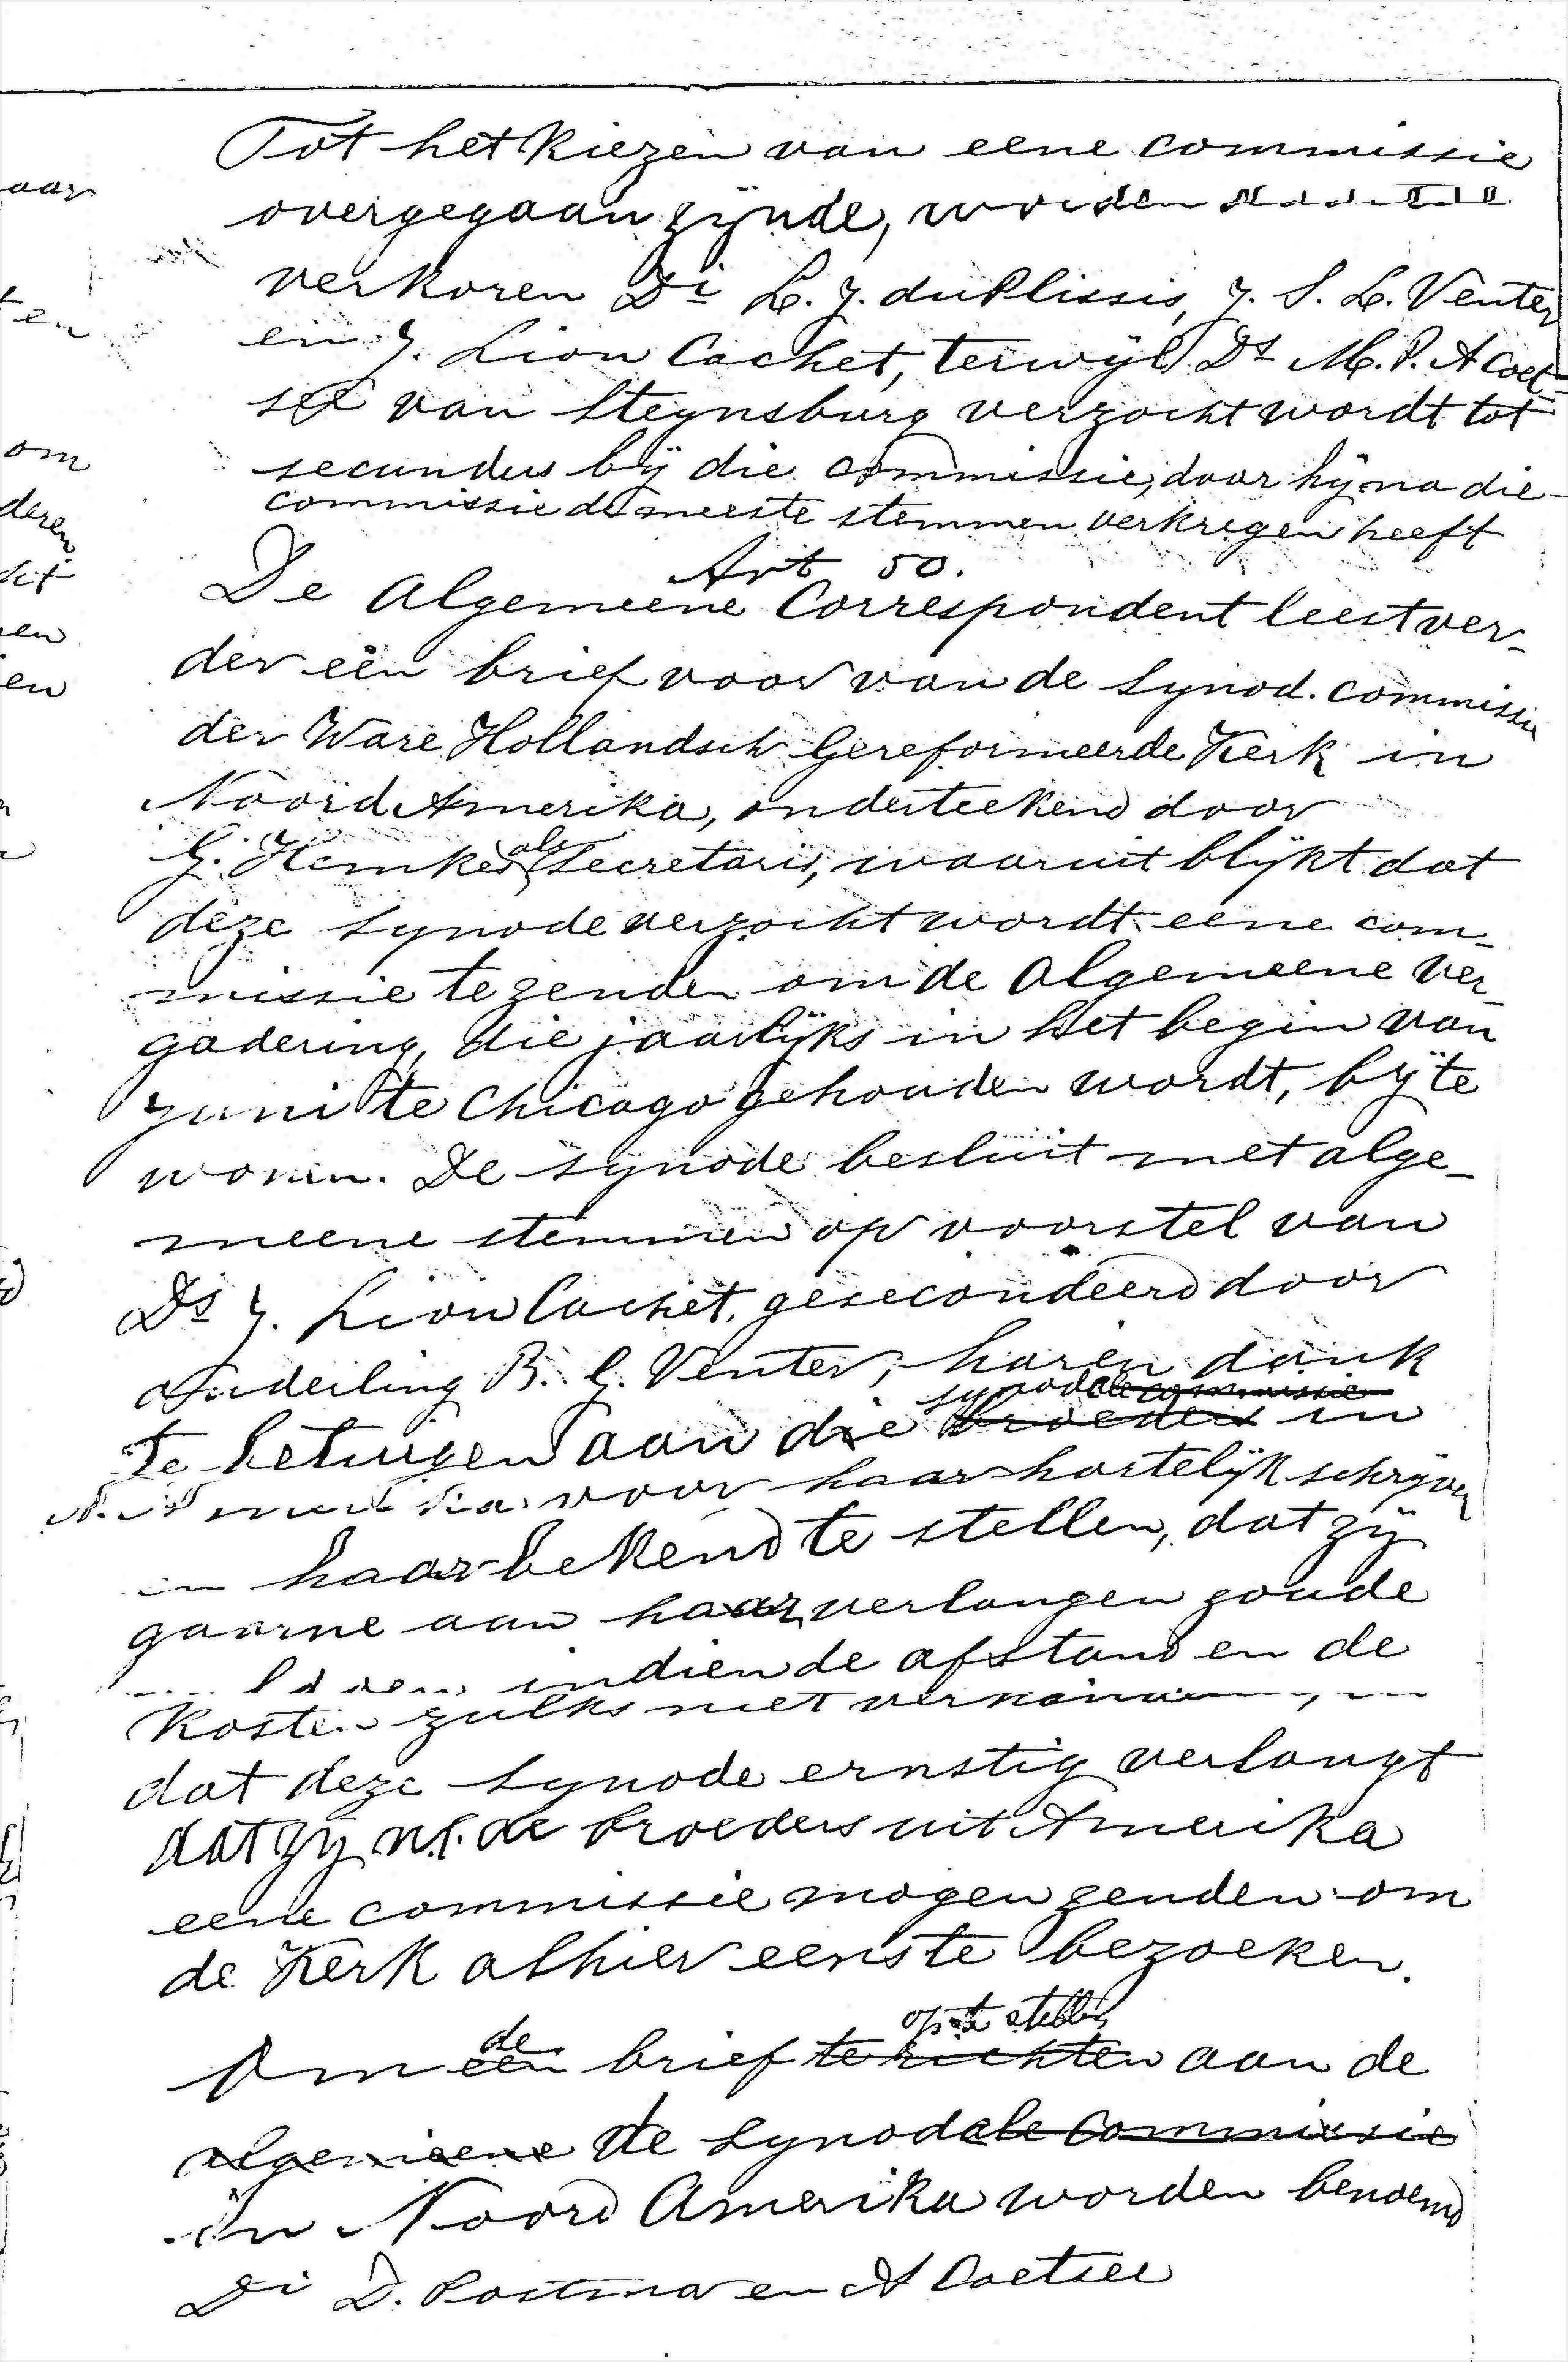 Tot het kiezen van eene commissie
overgegaan zijnde, worden
verkoren Di L. J. du Plissis, J. S. L. Venter
en J. Lion Cachet, terwijl Ds M. P. A Coet-
see van Steynsburg verzocht wordt tot
secundus bij die commissie, daar hij na die
commissie de meeste stemmen verkregen heeft
Art 50.
De Algemeene Correspondent leest ver-
der een brief voor van de Synod. commissie
der Ware Hollandsch Gereformeerde Kerk in
Noord Amerika, onderteekend door
G. Hemkes als Secretaris, waaruit blijkt dat
deze Synode verzocht wordt eene com-
missie te zenden om de Algemeene Ver-
gadering, die jaarlijks in het begin van
Juni te Chicago gehouden wordt, bij te
wonen. De Synode besluit met alge-
meene stemmen op voorstel van
Ds J. Lion Cachet, gesecondeerd door
Ouderling B. G. Venter, haren dank
synodale commissie
te betuigen aan die broeders in
N. Amerika voor haar hartelijk schrijven
en haar bekend te stellen, dat zij
gaarne aan haar verlangen zoude
indien de afstand en de
kosten zulks niet
dat deze Synode ernstig verlangt
dat zij n.l. de broeders uit Amerika
eene commissie mogen zenden om
de Kerk alhier eens te bezoeken.
de op te stellen
Om een brief te richten aan de
algemeene de Synodale Commissie
in Noord Amerika worden benoemd
Di D. Postma en A Coetsee